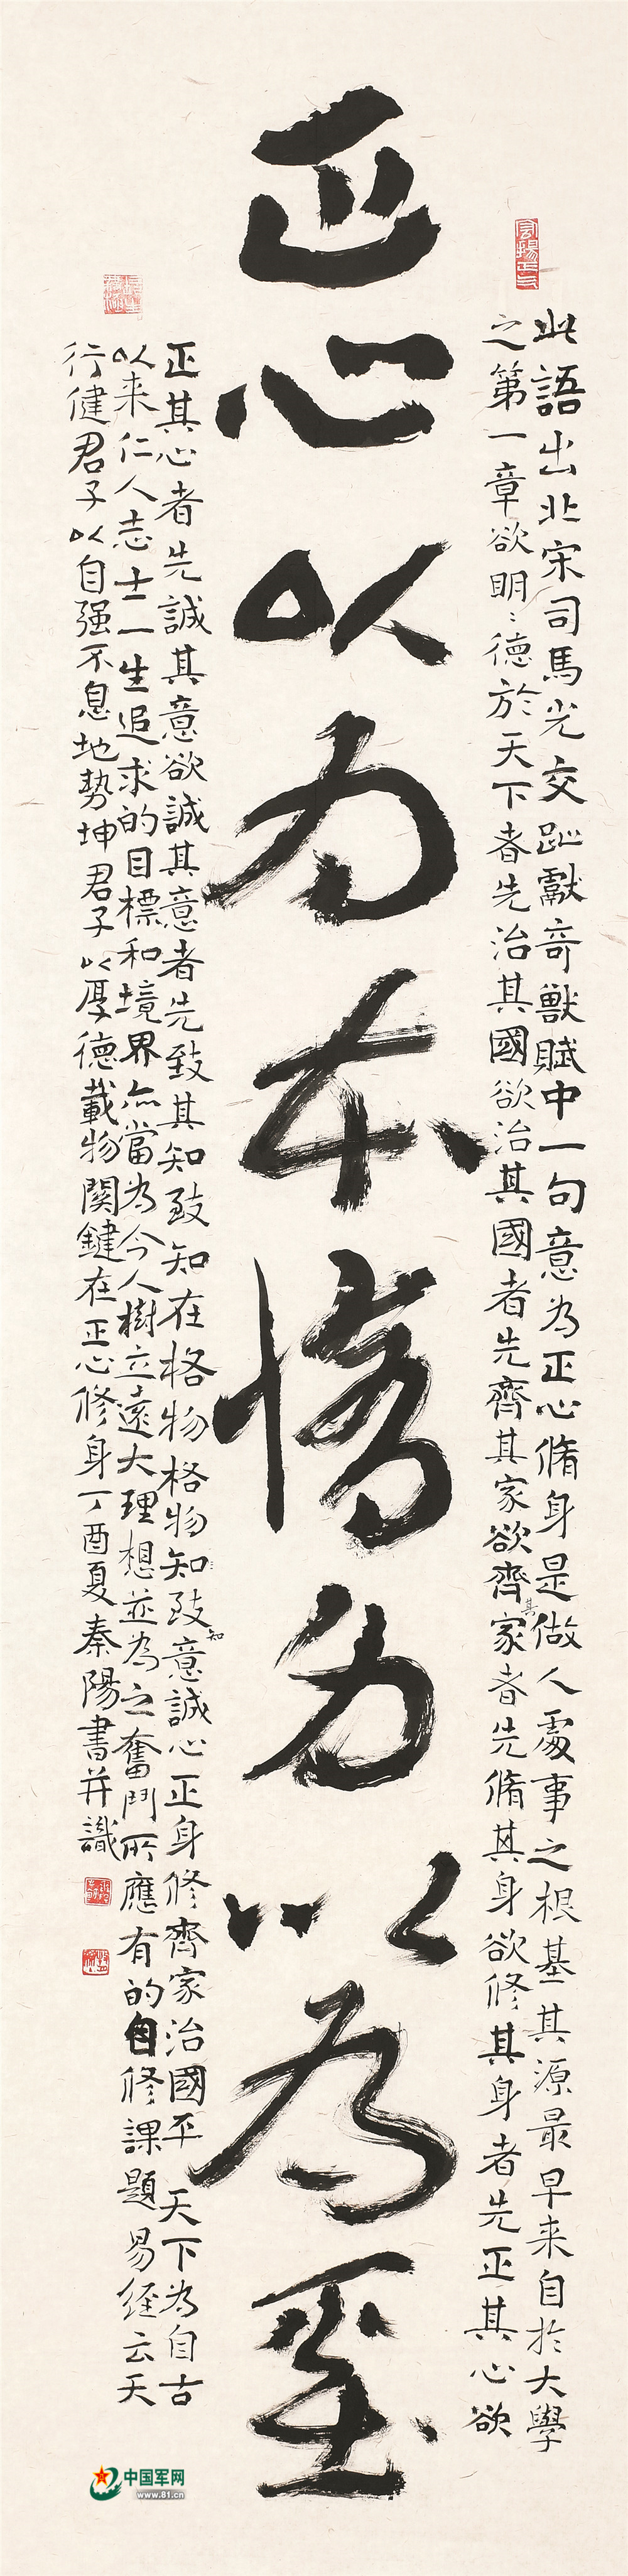 此語出北宋司馬光交趾獻奇獸賦中一句意為正心脩身是做人處事之根基其源最早来自於大學
之第一章欲明〻德於天下者先治其國欲治其國者先齊其家欲齊其家者先脩其身欲修其身者先正其心欲
正心以為本脩身以為基
正其心者先誠其意欲誠其意者先致其知致知在格物格物知致知意誠心正身修齊家治國平天下為自古
以来仁人志士一生追求的目標和境界亦當為今人樹立遠大理想並為之奮鬥所應有的自修課題易經云天
行健君子以自强不息地勢坤君子以厚德載物関鍵在正心修身丁酉夏秦陽書并識
中国军网
www.81.cn